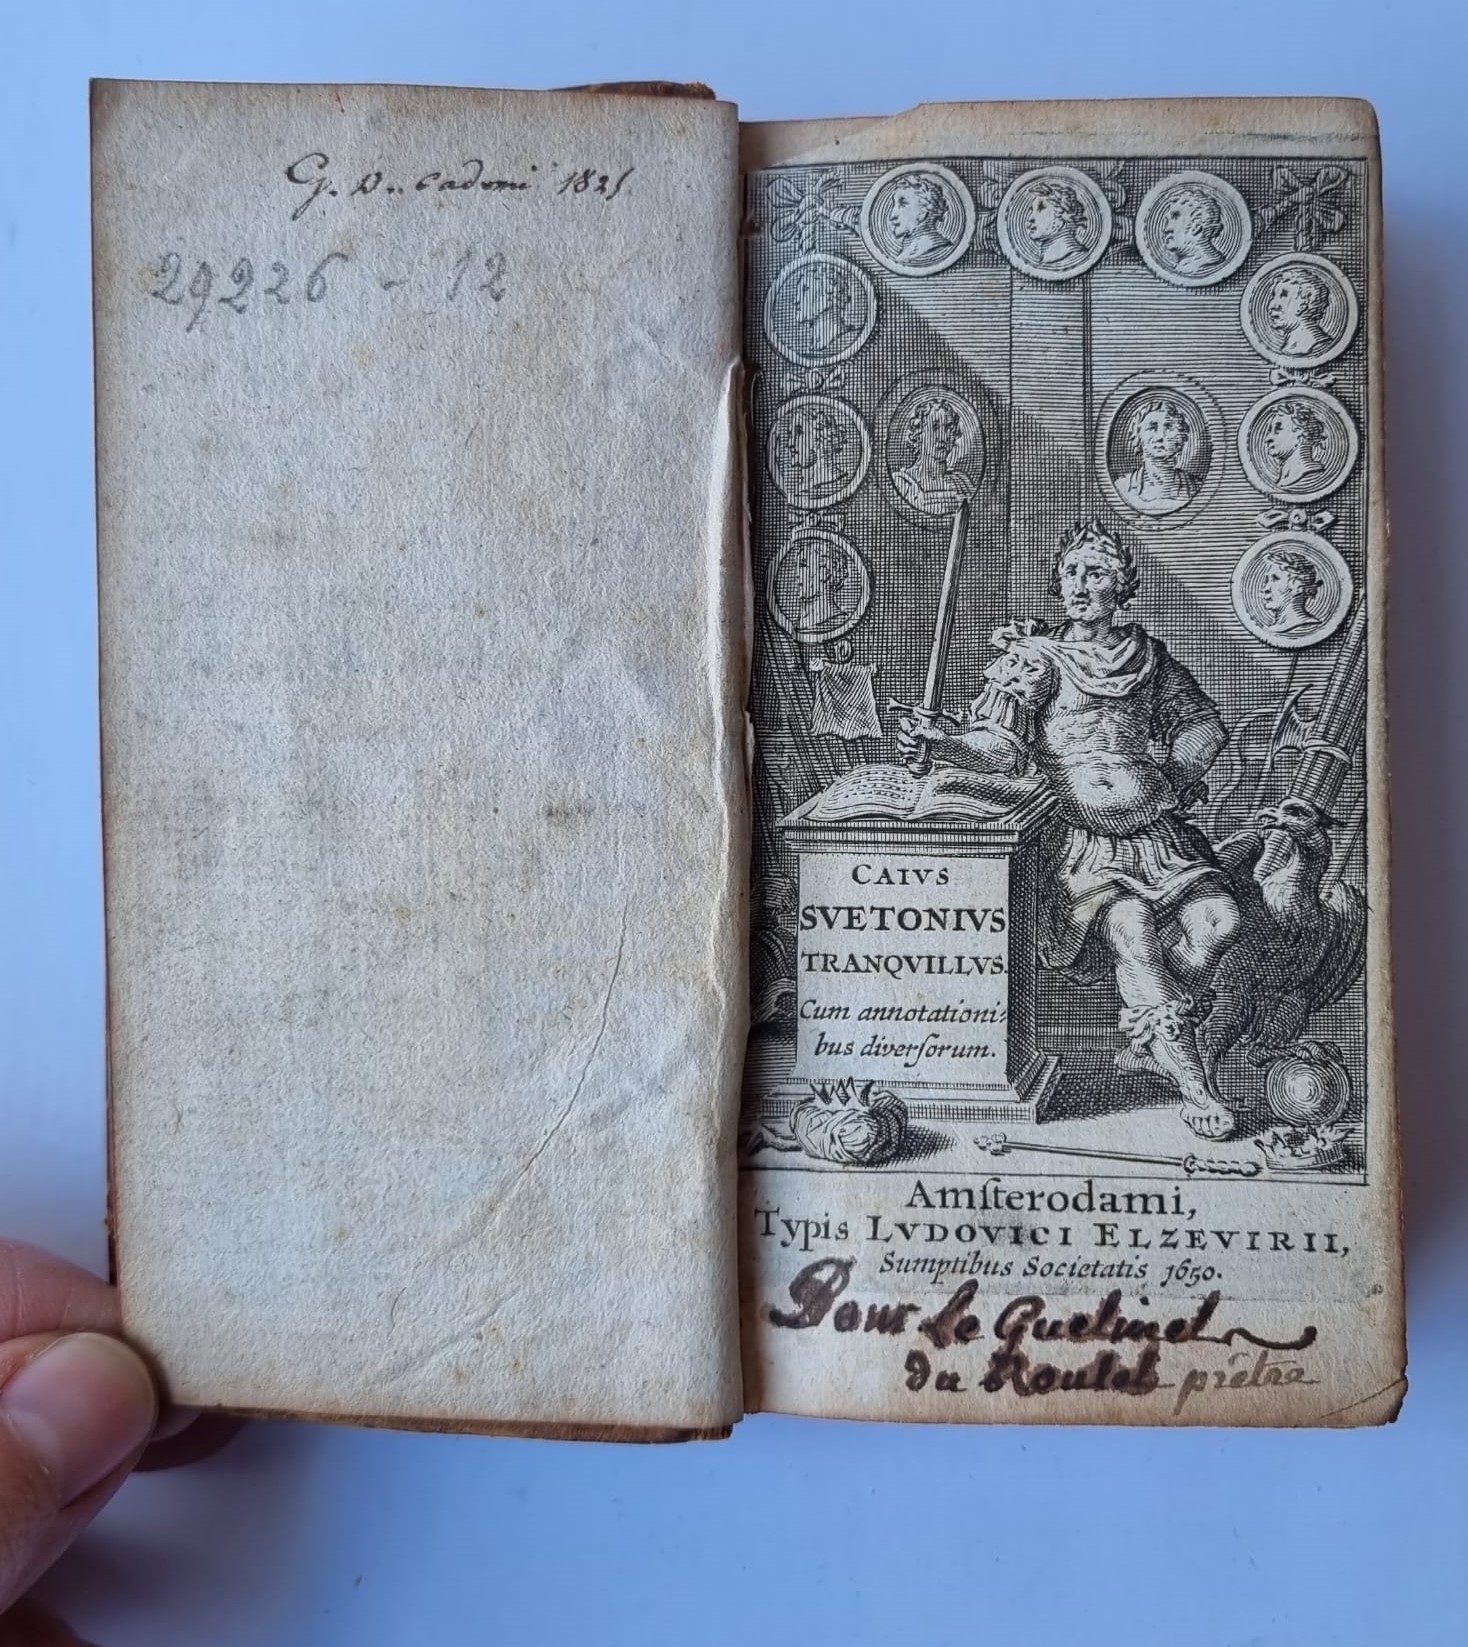 G. D.. Cadomi 1821
29226 - 12
CAIVS
SVETONIVS
TRANQVILLVS.
Cum annotationi-
bus diverſorum.
Amſterodami,
Typis LVDOVICI ELZEVIRII,
Sumptibus Societatis 1650.
Pour Le Guelinel
du Roulet prêtre